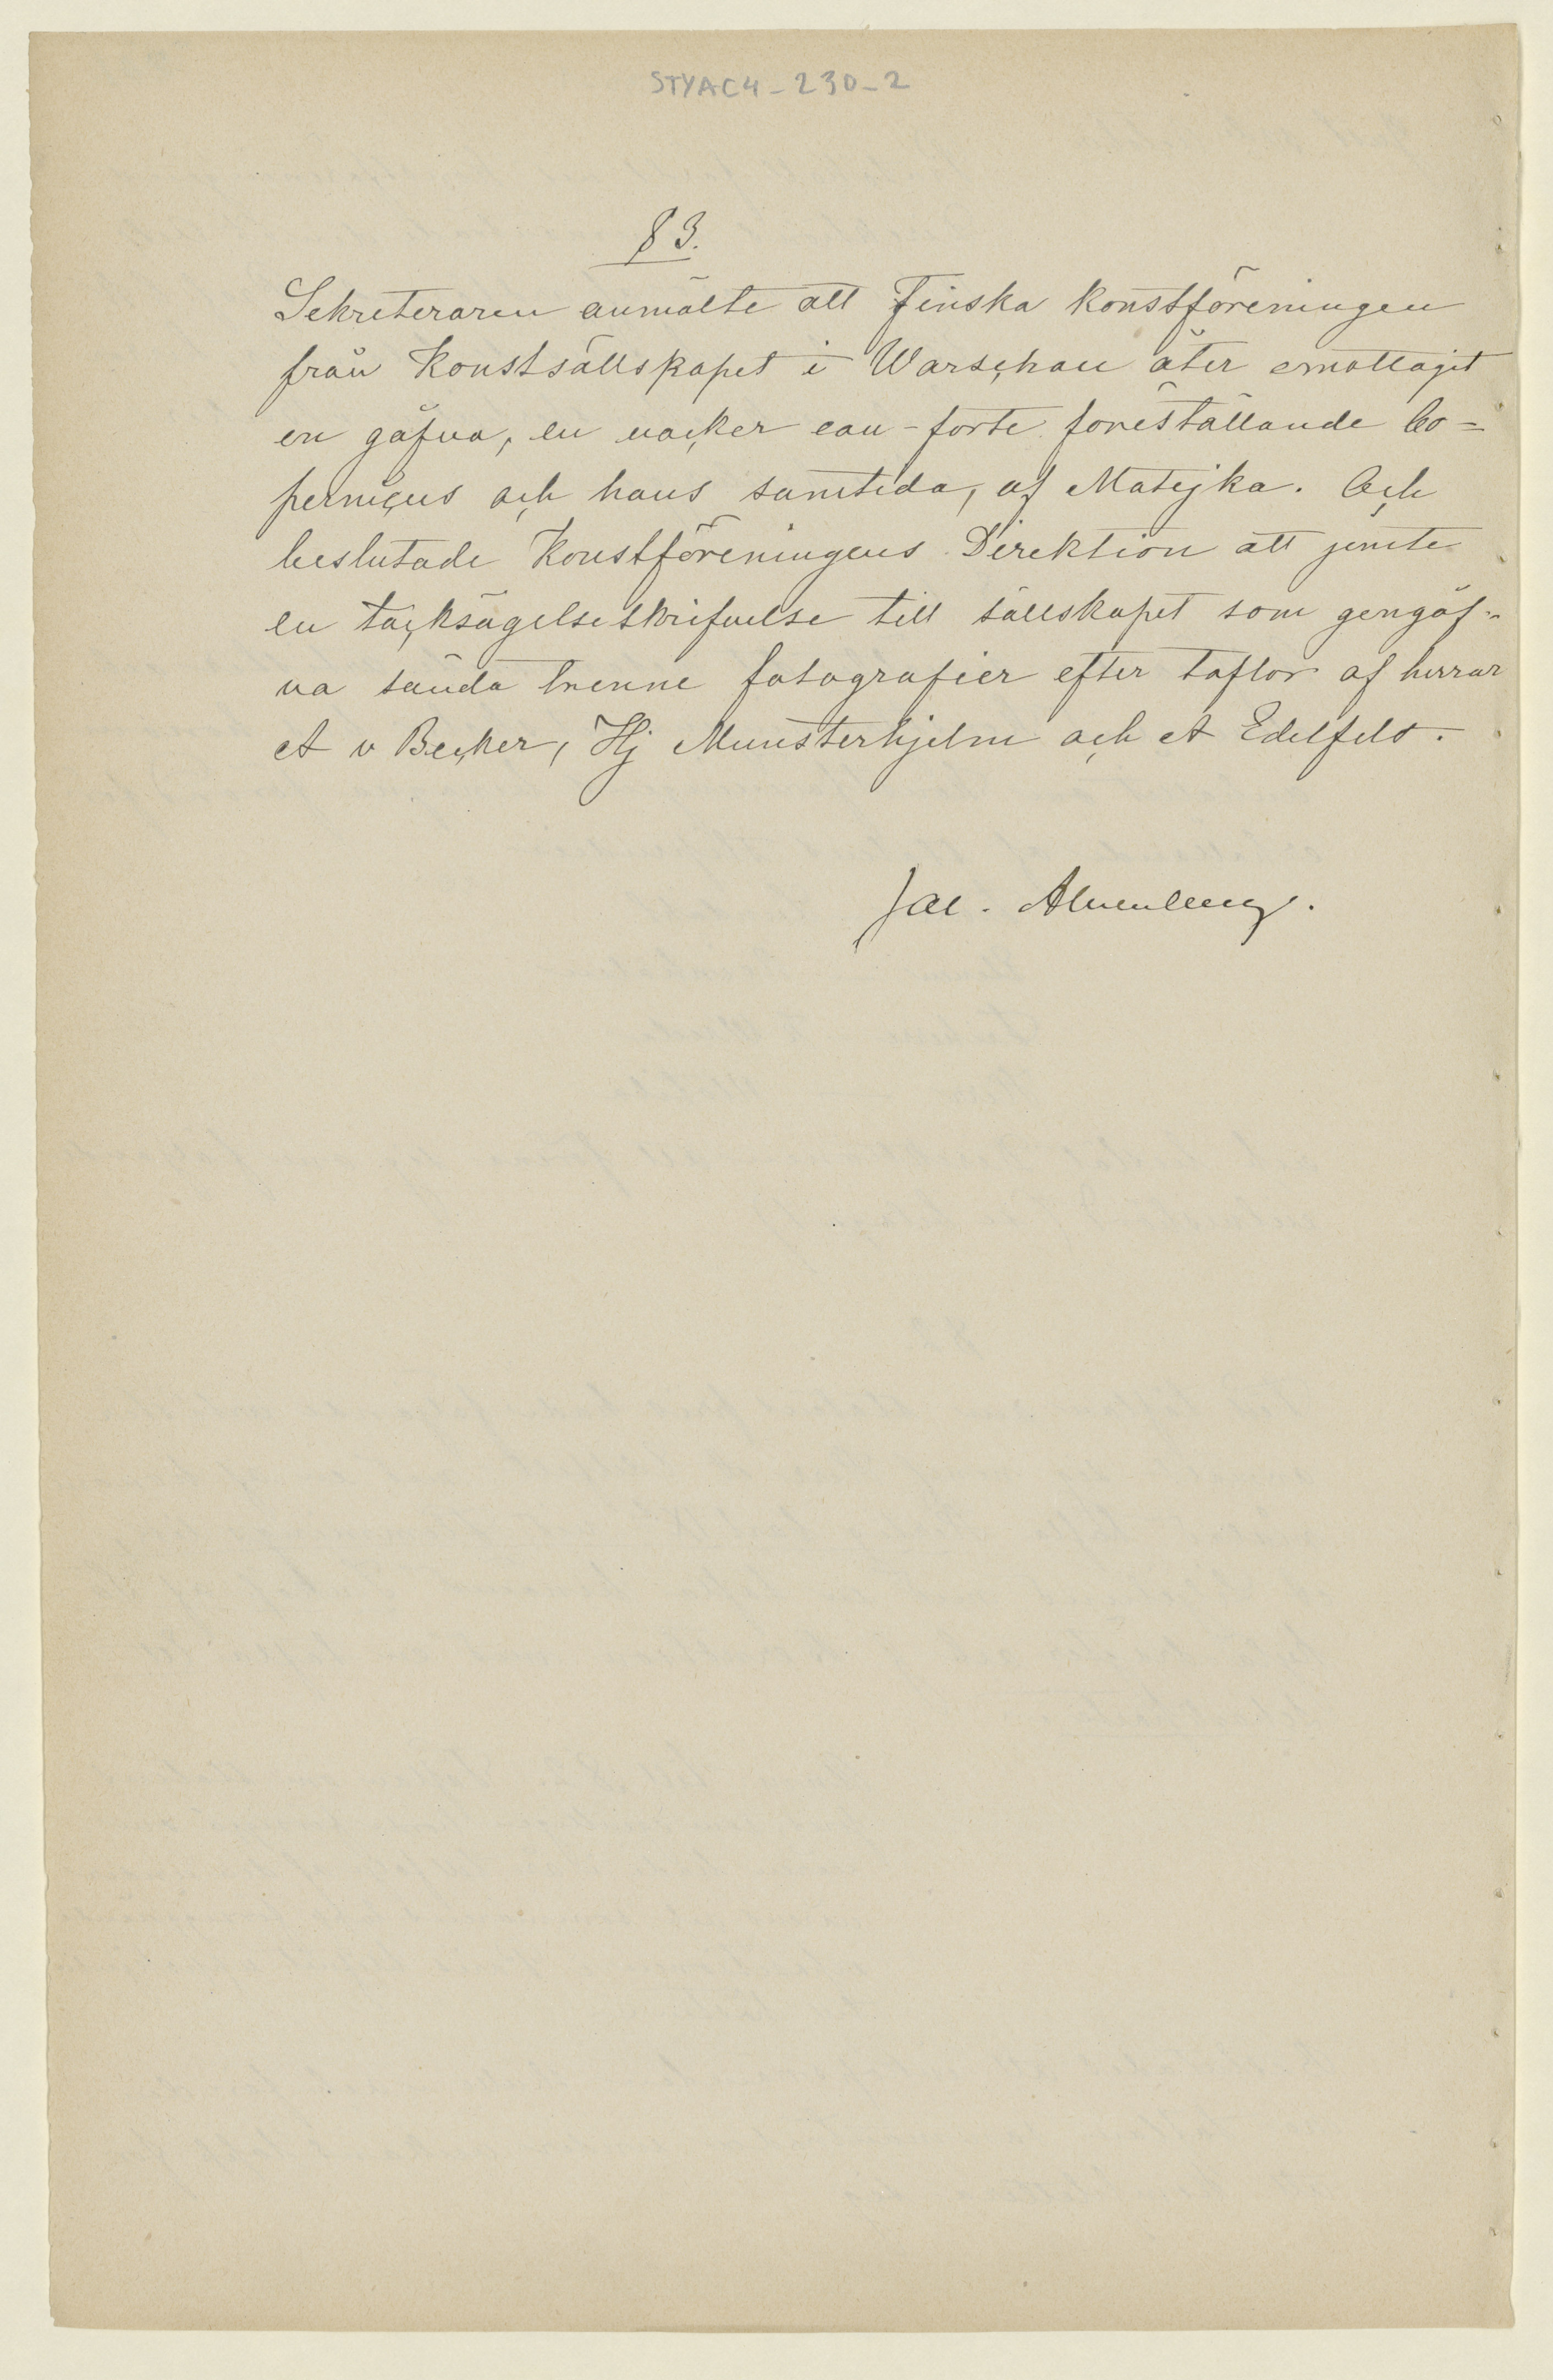 STYAC4-230-2
§ 3.
Sekreteraren anmälte att Finska Konstföreningen
från Konstsällskapet i Warschau åter emottagit
en gåfva, en vacker eau-forte föreställande Co=
pernicus och hans samtida, af Matejka. Och
beslutade Konstföreningens Direktion att jemte
en tacksägelseskrifvelse till sällskapet som gengåf=
va sända trenne fotografier efter taflor af herrar
A v Becker, Hj Munsterhjelm och A Edelfelt.
Jac. Ahrenberg.